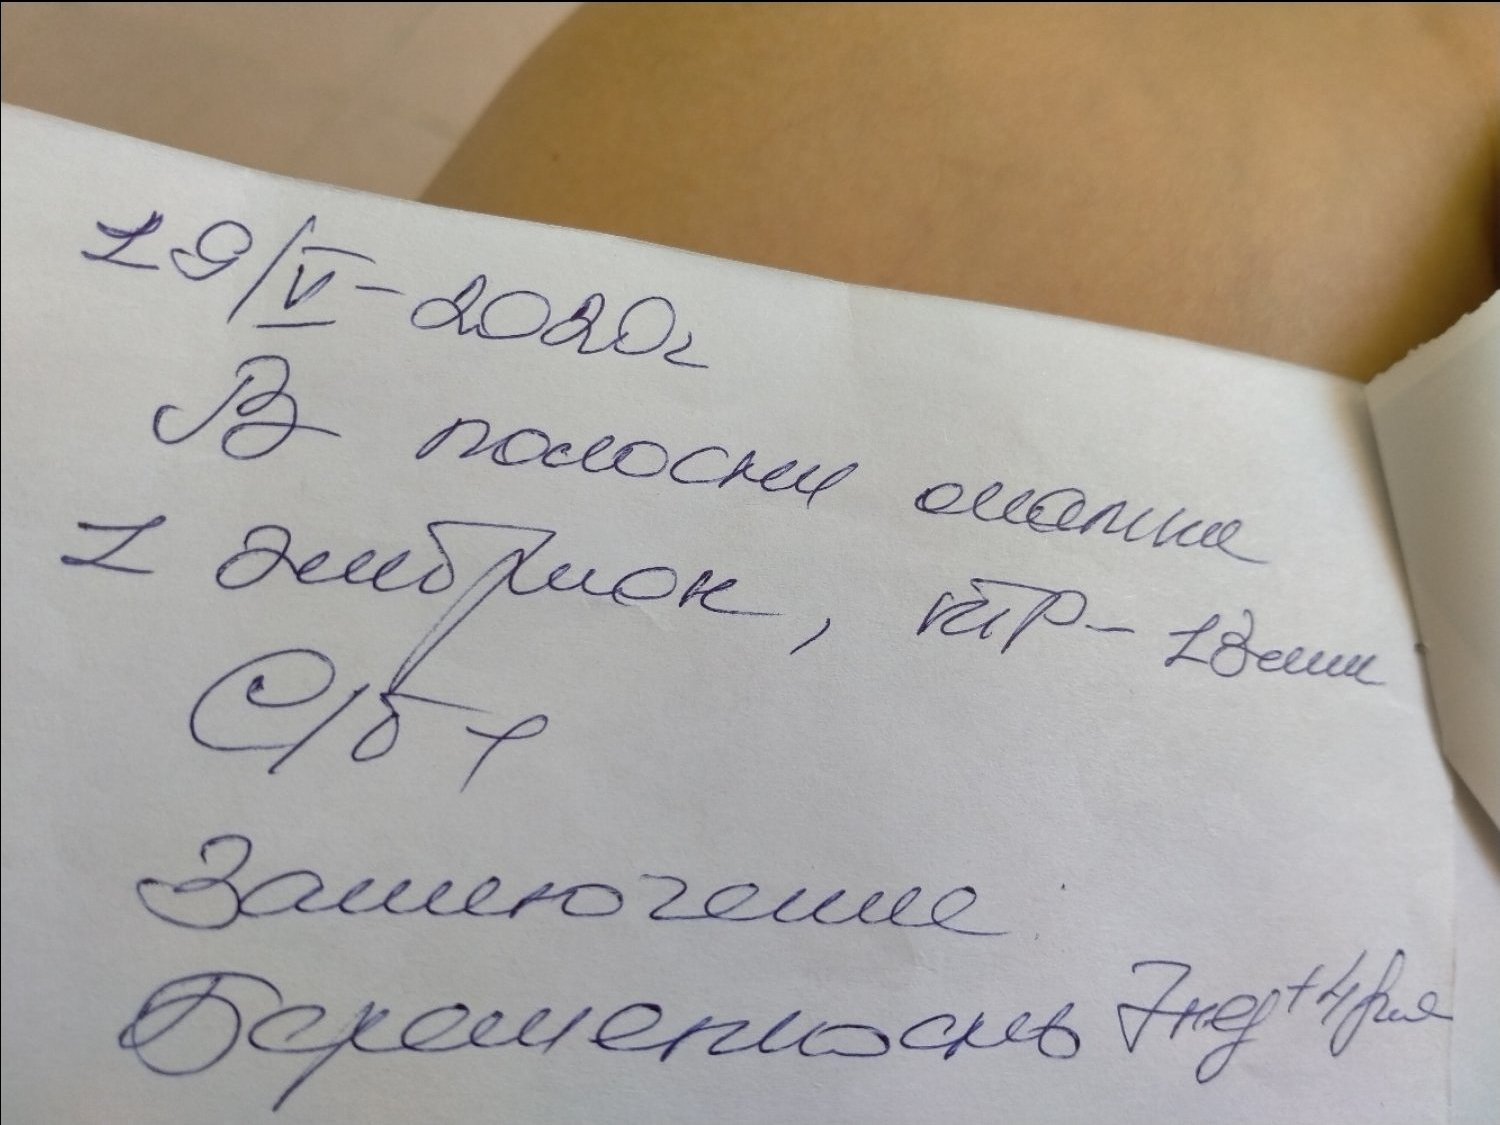 19/V-2020г
В полости матки
1 эмбрион, КТР-13мм
С/б +
Заключение
Беременность 7нед+4дня